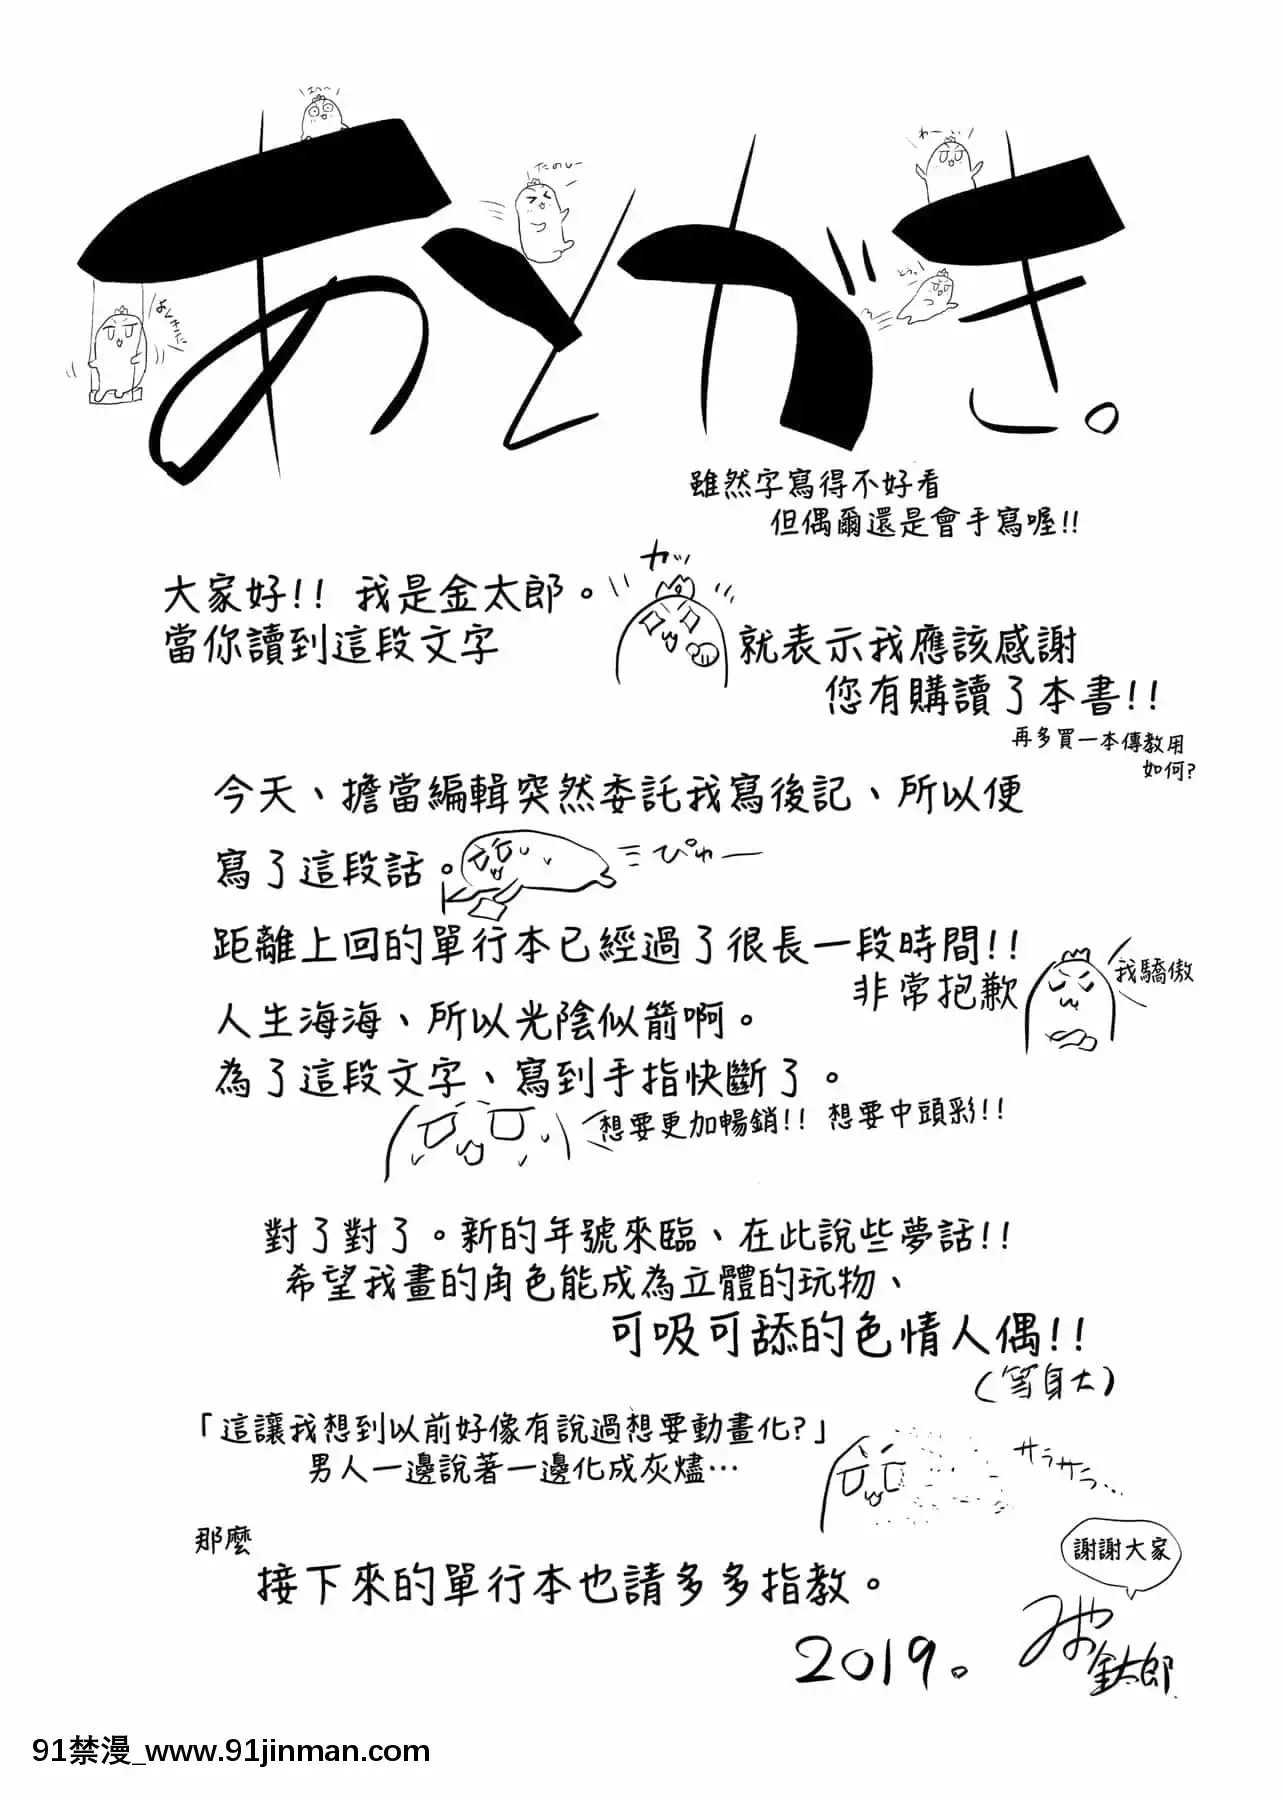 あとがき。
えっへ
たのしー
わーい
とぅっ
雖然字寫得不好看
但偶爾還是會手寫喔!!
カッ
大家好!! 我是金太郎。
當你讀到這段文字
就表示我應該感謝
您有購讀了本書!!
再多買一本傳教用
如何?
今天、擔當編輯突然委託我寫後記、所以便
寫了這段話。
ぴゅー
距離上回的單行本已經過了很長一段時間!!
非常抱歉
我驕傲
人生海海、所以光陰似箭啊。
為了這段文字、寫到手指快斷了。
想要更加暢銷!! 想要中頭彩!!
對了對了。新的年號來臨、在此說些夢話!!
希望我畫的角色能成為立體的玩物、
可吸可舔的色情人偶!!
(等身大)
「這讓我想到以前好像有說過想要動畫化?」
男人一邊說著一邊化成灰燼…
サラサラ…
那麼
接下來的單行本也請多多指教。
謝謝大家
2019。
みや金太郎
91禁漫_www.91jinman.com